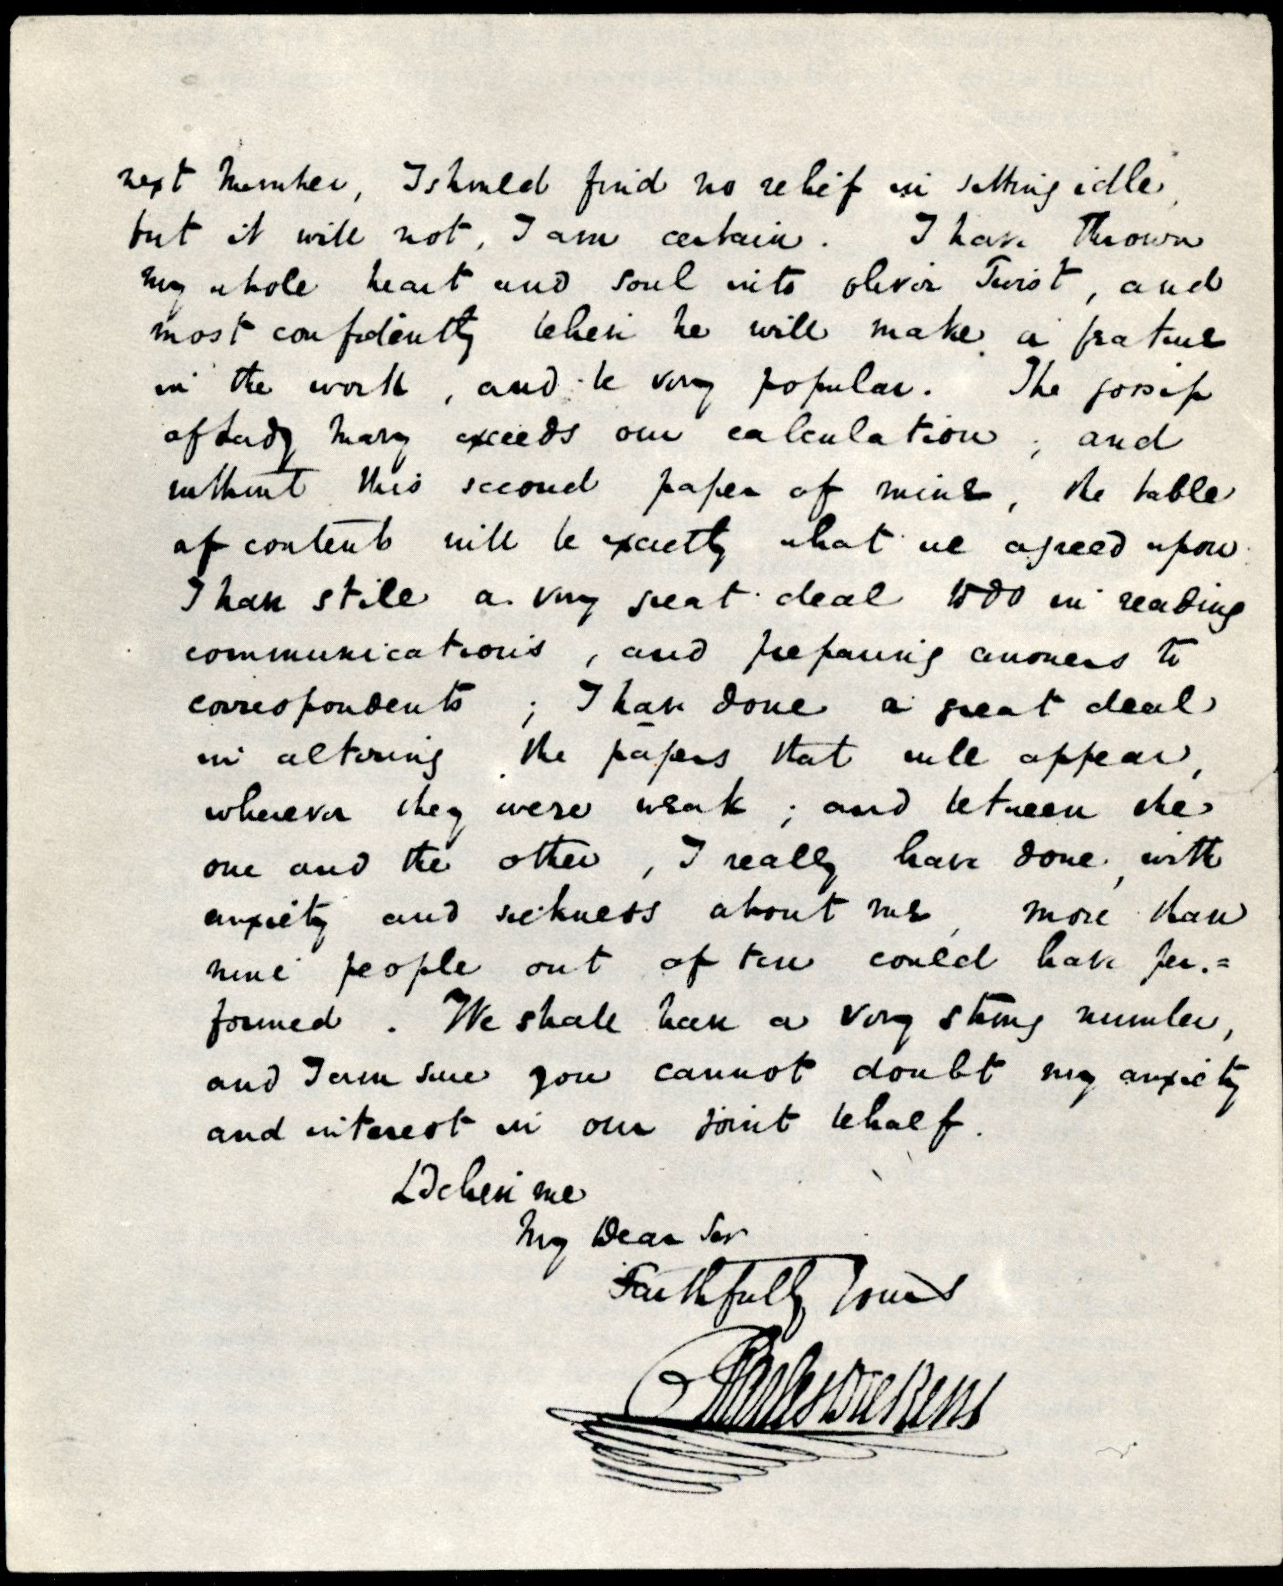 next Number, I should find no relief in sitting idle,
but it will not, I am certain. I have thrown
my whole heart and soul into Oliver Twist, and
most confidently believe he will make a feature
in the work, and be very popular. The gossip
of Lady Mary exceeds our calculation; and
without this second paper of mine, the table
of contents will be exactly what we agreed upon.
I have still a very great deal to do in reading
communications, and preparing answers to
correspondents; I have done a great deal
in altering the papers that will appear,
wherever they were weak; and between the
one and the other, I really have done, with
anxiety and sickness about me, more than
nine people out of ten could have per=
formed. We shall have a very strong number,
and I am sure you cannot doubt my anxiety
and interest in our joint behalf.
Believe me
My Dear Sir
Faithfully Yours
Charles Dickens